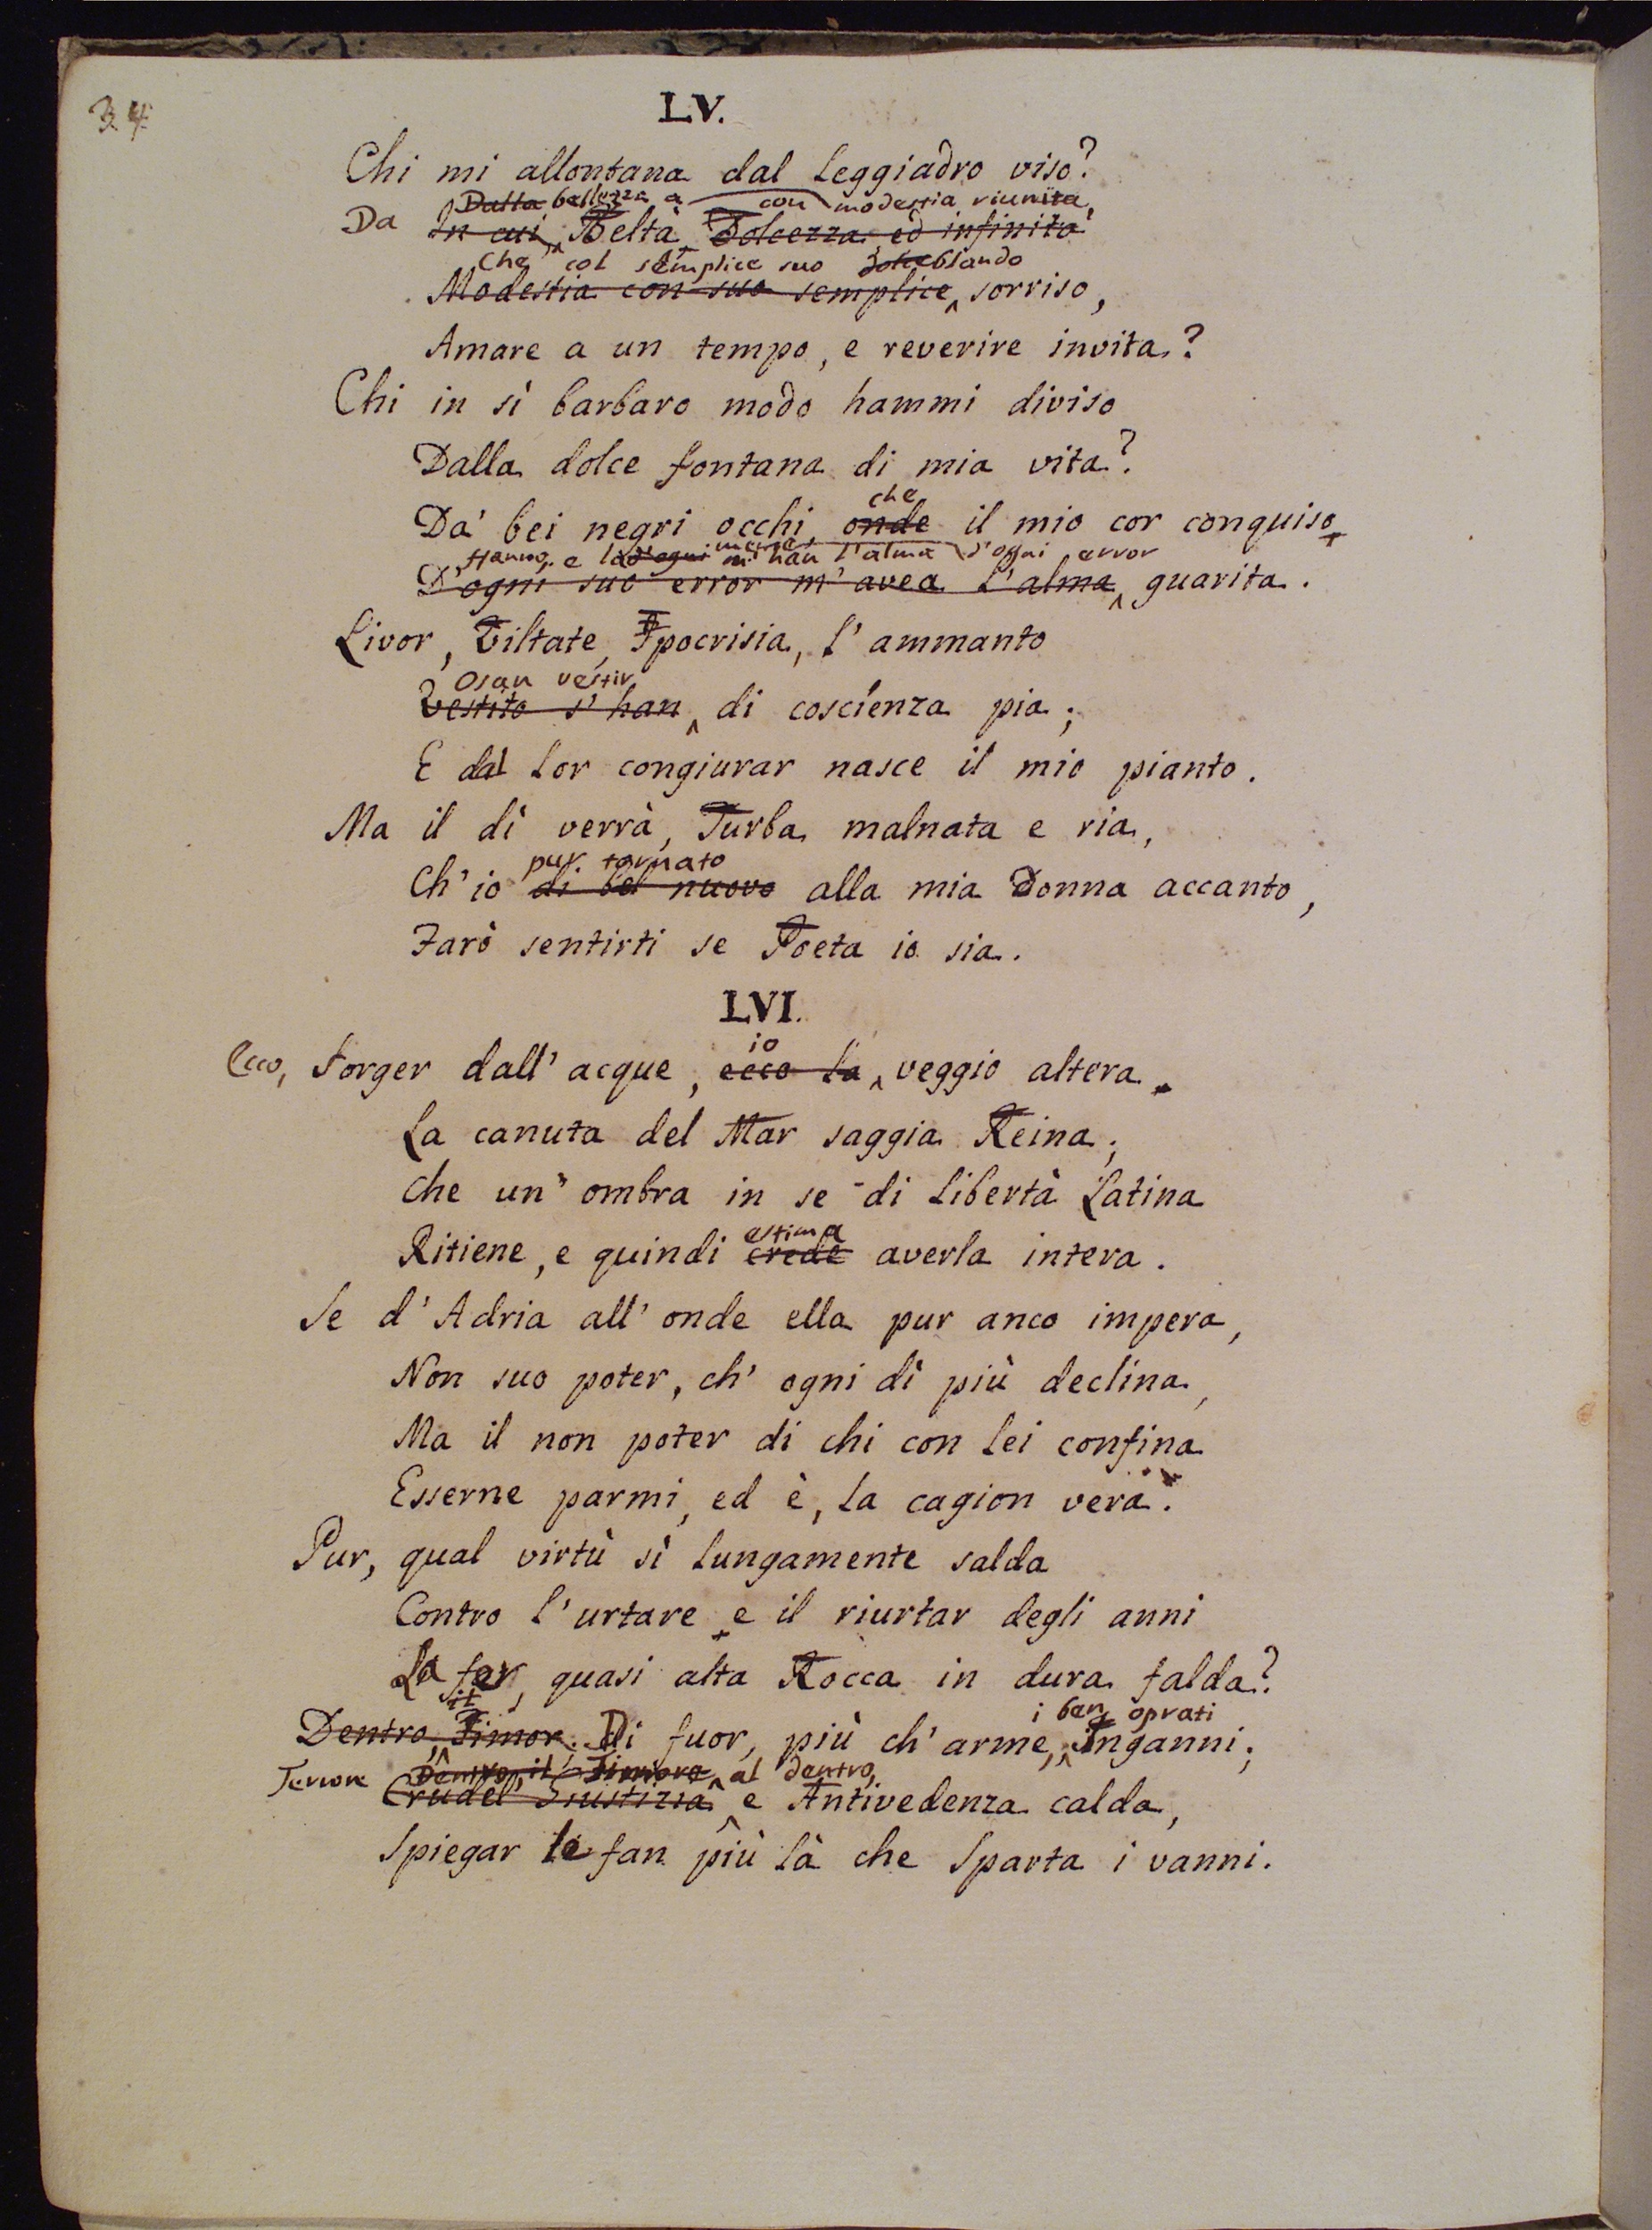 34
LV.
Chi mi allontana dal leggiadro viso?
Dalla bellezza a con modestia riunita,
Da In cui Beltà Dolcezza ed infinita
Che col semplice suo dolce blando
Modestia con suo semplice sorriso,
Amare a un tempo, e reverire invita?
Chi in sì barbaro modo hammi diviso
Dalla dolce fontana di mia vita?
che
Da' bei negri occhi, onde il mio cor conquiso
Hanno, e d'ogni m'han l'alma d'ogni error
D'ogni suo error m'avea l'alma guarita.
Livor, Viltate, Ipocrisia, l'ammanto
Osan vestir
Vestito s'han di coscienza pia;
E dal lor congiurar nasce il mio pianto.
Ma il dì verrà, Turba malnata e ria,
pur tornato
Ch'io di bel nuovo alla mia Donna accanto,
Farò sentirti se Poeta io sia.
LVI.
io
Ecco, Sorger dall'acque, ecco la veggio altera
La canuta del Mar saggia Reina,
Che un' ombra in se di libertà Latina
estima
Ritiene, e quindi crede averla intera.
Se d'Adria all'onde ella pur anco impera,
Non suo poter, ch'ogni dì più declina,
Ma il non poter di chi con lei confina
Esserne parmi, ed è, la cagion vera.
Pur, qual virtù sì lungamente salda
Contro l'urtare e il riurtar degli anni
La fer, quasi alta Rocca in dura falda?
il i ben oprati
Dentro, Timor. Di fuor, più ch'arme, Inganni;
Terrore Dentro, il Timore al dentro,
Crudel Giustizia e Antivedenza calda,
Spiegar le fan più là che Sparta i vanni.